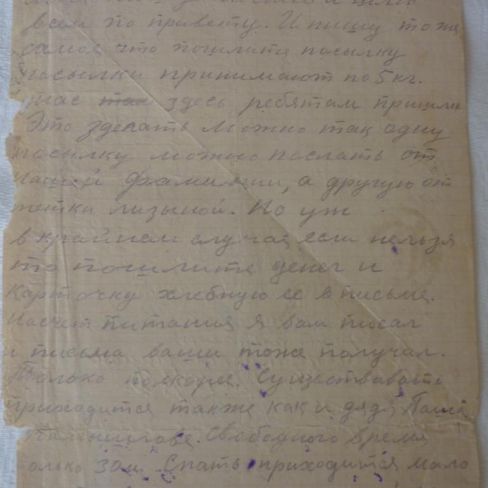 всем по привету. И пишу тоже
самое что пошлите посылку
посылки принимают по 5 кг.
у нас здесь ребятам пришли
Это зделать можно так одну
посылку можно послать от
нашей фамилии, а другую от
тетки лизыной. Но уж
в крайнем случае если нельзя
то пошлите денег и
карточку хлебную ее в письме.
Насчет питания я вам писал
и письма ваши тоже получал.
Только
приходится также как и дядя Паша
Свободного время
только Спать приходится мало